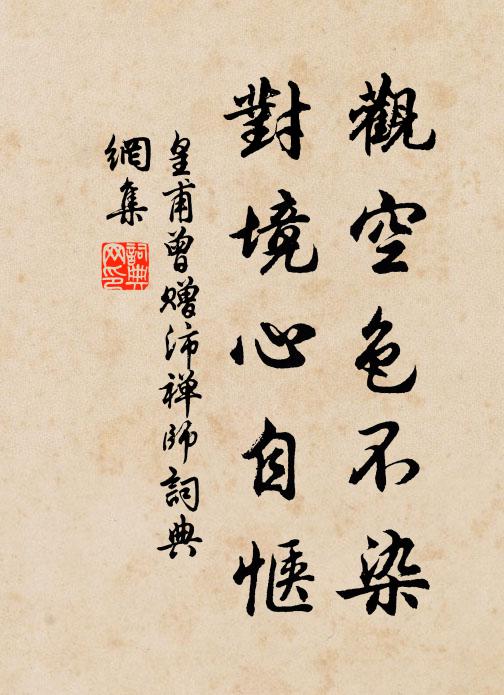 觀空色不染
對境心自愜
皇甫曾贈沛禪師詞典
網集
詞典
网印